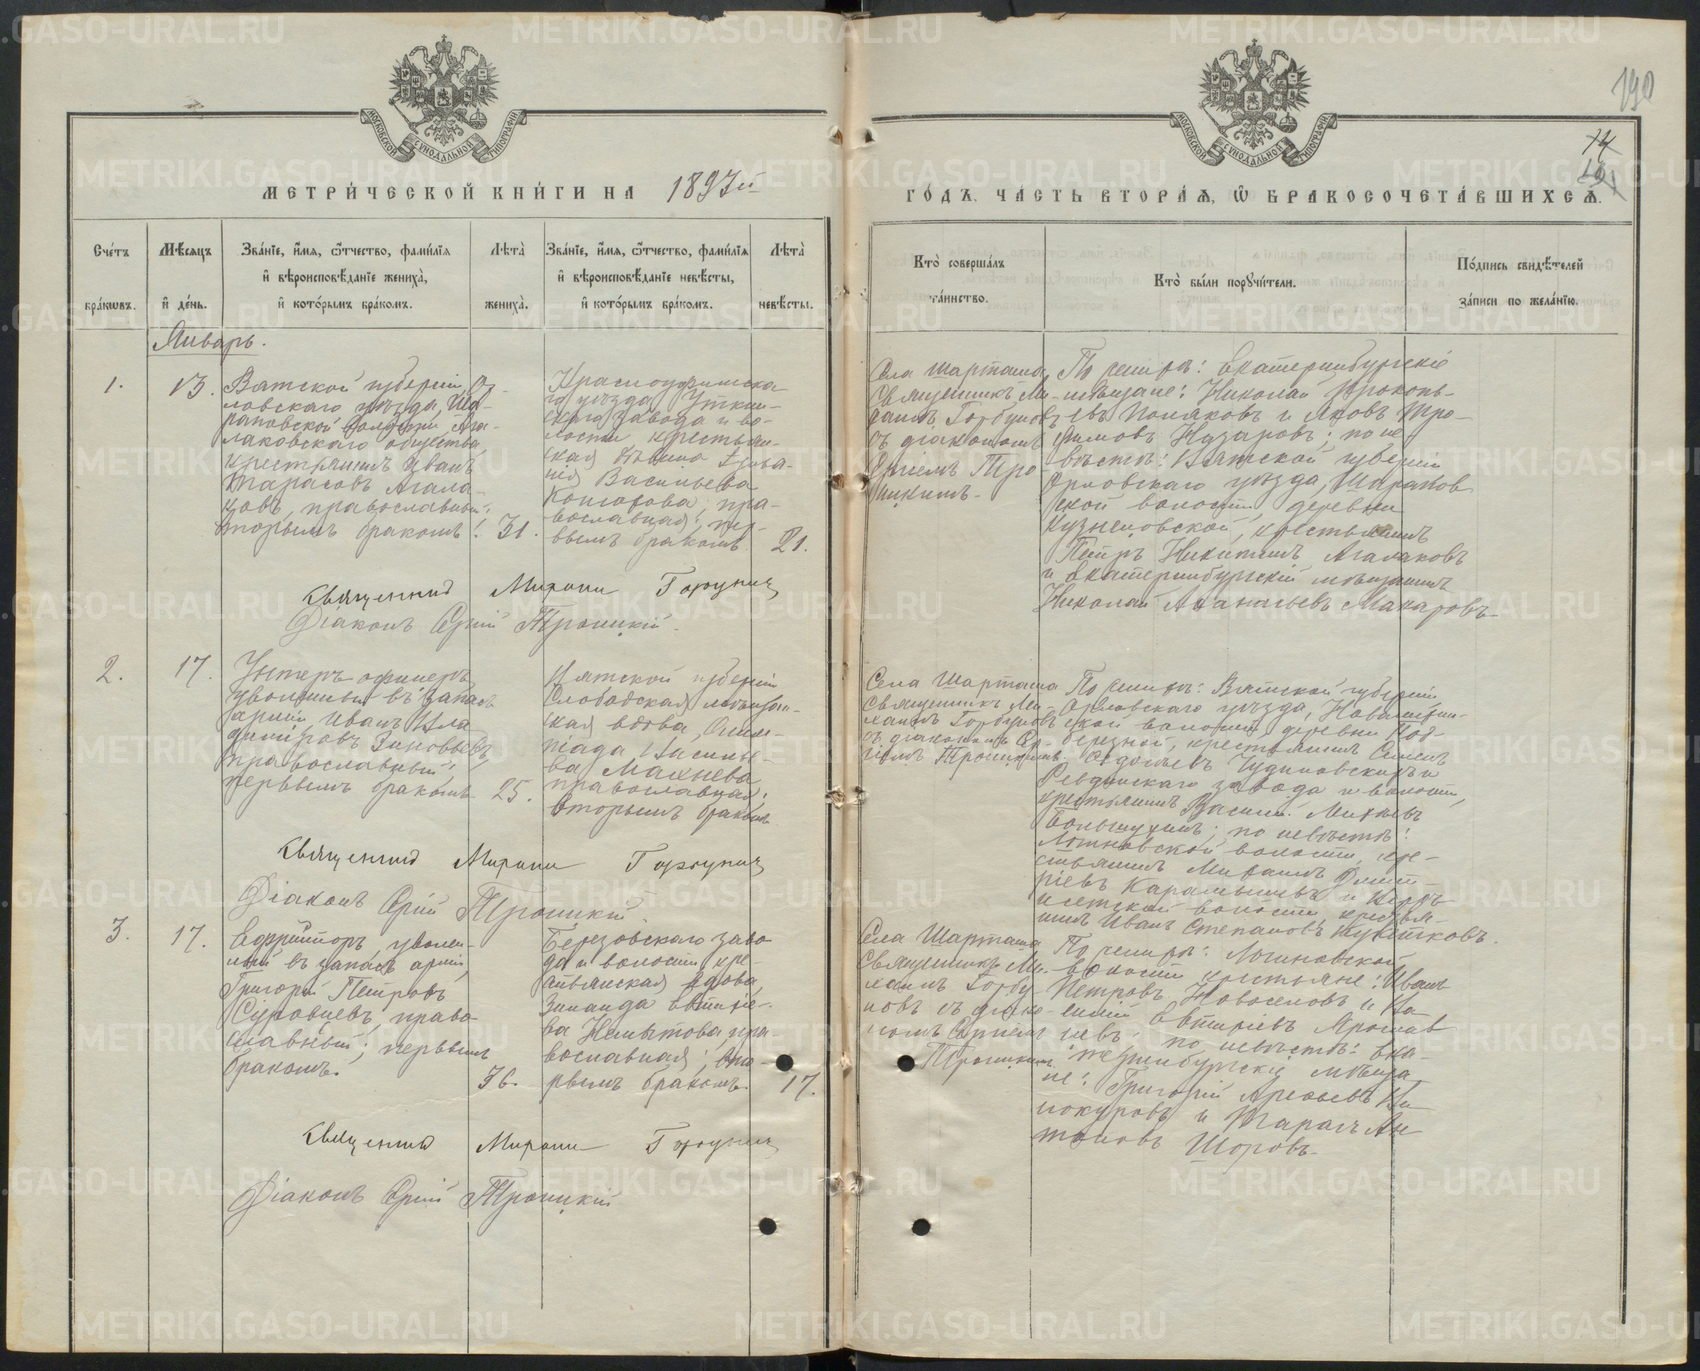 190
14
МЕТРИ́ЧЕСКОЙ КНИ́ГИ НА 1897й
ГО́ДЪ, ЧА́СТЬ ВТОРА́Я, Ѡ҆ БРАКОСОЧЕТА́ВШИХСЯ.
Сче́тъ бра́кѡвъ.
Мѣ́сяцъ и҆ де́нь.
Зва́нїе, и҆́мя, ѻ҆́тчество, фами́лїя
и҆ вѣроисповѣ́данїе жениха̀,
и҆ кото́рымъ бра́комъ.
Лѣта̀ жениха̀.
Зва́нїе, и҆́мя, ѻ҆́тчество, фами́лїя
и҆ вѣроисповѣ́данїе невѣ́сты,
и҆ кото́рымъ бра́комъ.
Лѣта̀ невѣ́сты.
Кто̀ соверша́лъ
та́инство.
Кто̀ бы́ли порꙋчи́тели.
По́дпись свидѣ́телей
за́писи по жела́нїю.
Январь.
1.
13.
Вятской губерніи, Ор-
ловскаго уѣзда, Ша-
рановской волости, Ага-
лаковскаго общества
крестьянинъ Иванъ
Тарасовъ Агала-
ковъ, православный;
вторымъ бракомъ.
31.
Красноуфимска-
го уѣзда Уткин-
скаго завода и во-
лости, крестьян-
ская
Васильева
пра-
вославная; пер-
вымъ бракомъ.
21.
Села Шарташа
Священникъ Ми-
хаилъ Горбуновъ
съ діакономъ
Сергіемъ Тро-
ицкимъ.
По женихѣ: Екатеринбургскіе
мѣщане: Николай Прокопь-
евъ Поляковъ и Яковъ Тро-
фимовъ Назаровъ; по не-
вѣстѣ: Вятской губерніи
Орловскаго уѣзда, Шаранов
ской волости, деревни
Кузнецовской, крестьянинъ
Петръ Никитинъ Агалаковъ
и Екатеринбургскій мѣщанинъ
Николай Макаровъ.
Священникъ Михаилъ Горбуновъ
Діаконъ Сергій Троицкій.
2.
17.
Унтеръ офицеръ
уволенный въ запасъ
арміи, Иванъ Вла-
диміровъ Зиновьевъ,
православный;
первымъ бракомъ.
25.
Вятской губерніи
Слободская мѣщан-
ская вдова, Олим-
піада Василье-
ва Махнева
православная;
вторымъ бракомъ
Села Шарташа
Священникъ Ми-
хаилъ Горбуновъ
съ діакономъ Сер-
гіемъ Троицкимъ.
По женихѣ: Вятской губерніи
Орловскаго уѣзда,
ской волости, деревни Под-
березной, крестьянинъ Семенъ
Чудиновскихъ и
Ревдинскаго завода и волости,
крестьянинъ Василій Михѣевъ
по невѣстѣ:
Логиновской волости, кре-
стьянинъ Михаилъ Дмит-
ріевъ Карамышевъ и
исетской волости, крестья-
нинъ Иванъ Степановъ
Священникъ Михаилъ Горбуновъ
Діаконъ Сергій Троицкій.
3.
17.
Ефрейторъ, уволен-
ный въ запасъ арміи,
Григорій Петровъ
Суровцевъ, право-
славный; первымъ
бракомъ.
36.
Березовскаго заво-
да и волости, кре-
стьянская вдова,
Зинаида
ва пра-
вославная;
рвымъ бракомъ.
17.
Села Шарташа
Священникъ Ми-
хаилъ Горбу-
новъ съ діако-
номъ Сергіемъ
Троицкимъ.
По женихѣ: Логиновской
волости крестьяне: Иванъ
Петровъ Новоселовъ и Ва-
силій Евтихіевъ
по невѣстѣ: Ека-
теринбургскіе мѣща-
не: Григорій
и Тарасъ Ан-
тоновъ Шоровъ.
Священникъ Михаилъ Горбуновъ
Діаконъ Сергій Троицкій
METRIKI.GASO-URAL.RU